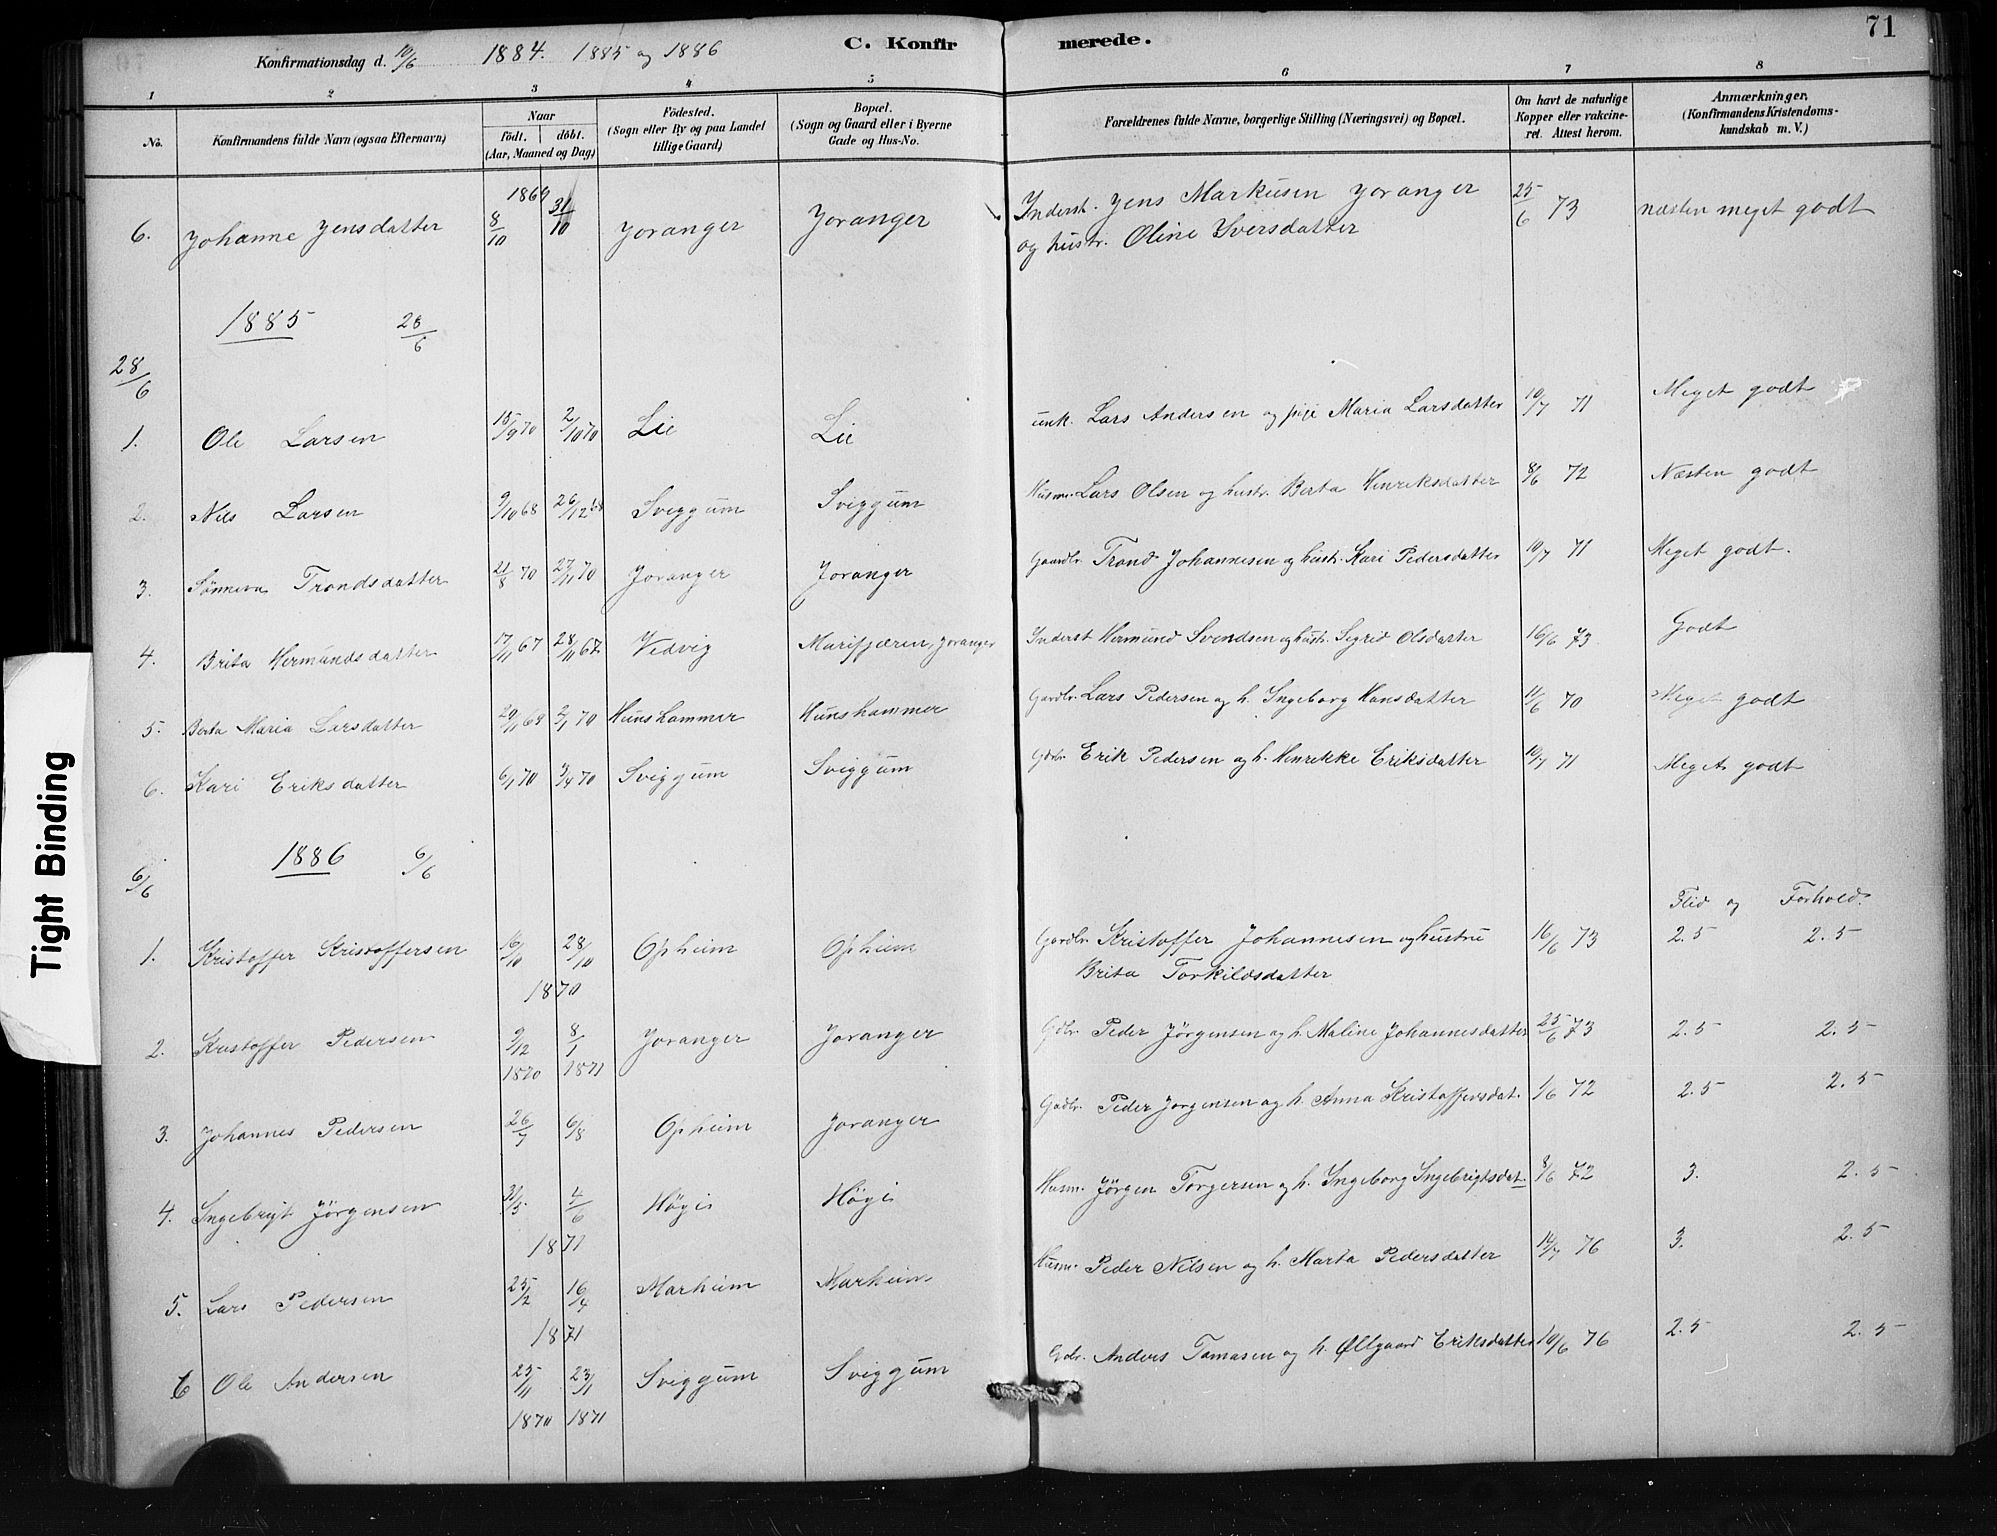 71
Konfirmationsdag d. 10/6 1884. 1885 og 1886 C. Konfirmerede.
1 2 3 4 5 6 7 8
No. Konfirmandens fulde Navn (ogsaa Efternavn) Naar födt. döbt. (Aar, Maaned og Dag) Födested. (Sogn eller By og paa Landet tillige Gaard) Bopæl. (Sogn og Gaard eller i Byerne Gade og Hus-No. Forældrenes fulde Navne, borgerlige Stilling (Næringsvei) og Bopæl. Om havt de naturlige Kopper eller vakcineret. Attest herom. Anmærkninger. (Konfirmandens Kristendomskundskab m. V.)
1869
6. Johanne Jensdatter 8/10 31/10 Joranger Joranger Inderst. Jens Markusen Joranger 25/6 73 næsten meget godt
og hustr. Oline Iversdatter
1885 28/6
28/6
1. Ole Larsen 15/9 70 2/10 70 Lie Lie unk. Lars Andersen og pige Maria Larsdatter 10/7 71 Meget godt
2. Nils Larsen 9/10 68 26/12 68 Sviggum Sviggum Husm. Lars Olsen og hustr. Berta Henriksdatter 8/6 72 Næsten godt
3. Sønneva Trondsdatter 21/8 70 27/11 70 Joranger Joranger Gaardbr. Trond Johannesen og hustr. Kari Pedersdatter 10/7 71 Meget godt.
4. Brita Hermundsdatter 17/11 67 28/11 67 Vedvig Marifjæren, Joranger Inderst Hermund Svendsen og hustr. Sigrid Olsdatter 16/6 73. Godt
5. Berta Maria Larsdatter 29/11 69 2/1 70 Hunshammer Hunshammer Gardbr. Lars Pedersen og h. Ingeborg Hansdatter 11/6 70 Meget godt
6. Kari Eriksdatter 6/1 70 3/4 70 Sviggum Sviggum Gdbr. Erik Pedersen og h. Henrikke Eriksdatter 10/7 71 Meget godt
1886 6/6
6/6
Flid og Forhold.
1. Kristoffer Kristoffersen 16/10 28/10 Opheim Opheim Gardbr. Kristoffer Johannesen og hustru 16/6 73 2.5 2.5
Brita Torkildsdatter
1870
2. Kristoffer Pedersen 9/12 8/1 Joranger Joranger Gdbr. Peder Jörgensen og h. Maline Johannesdatter 25/6 73 2.5 2.5
1870 1871
3. Johannes Pedersen 26/7 6/8 Opheim Joranger Gadbr. Peder Jorgensen og h. Anna Kristoffersdat. 1/6 72 2.5 2.5
4. Ingebrigt Jörgensen 31/5 4/6 Högi Högi Husm. Jörgen Torgersen og h. Ingeborg Ingebrigtsdat. 8/6 72 3. 2.5
1871
5. Lars Pedersen 25/2 16/4 Marheim Marheim Husm. Peder Nilsen og h. Marta Pedersdatter 14/7 76 3. 2.5
1871
6 Ole Andersen 25/11 23/1 Sviggum Sviggum Gdbr. Anders Tomasen og h. Øllgaard Eriksdatter 10/6 76 2.5 2.5
1870 1871
Tight Binding